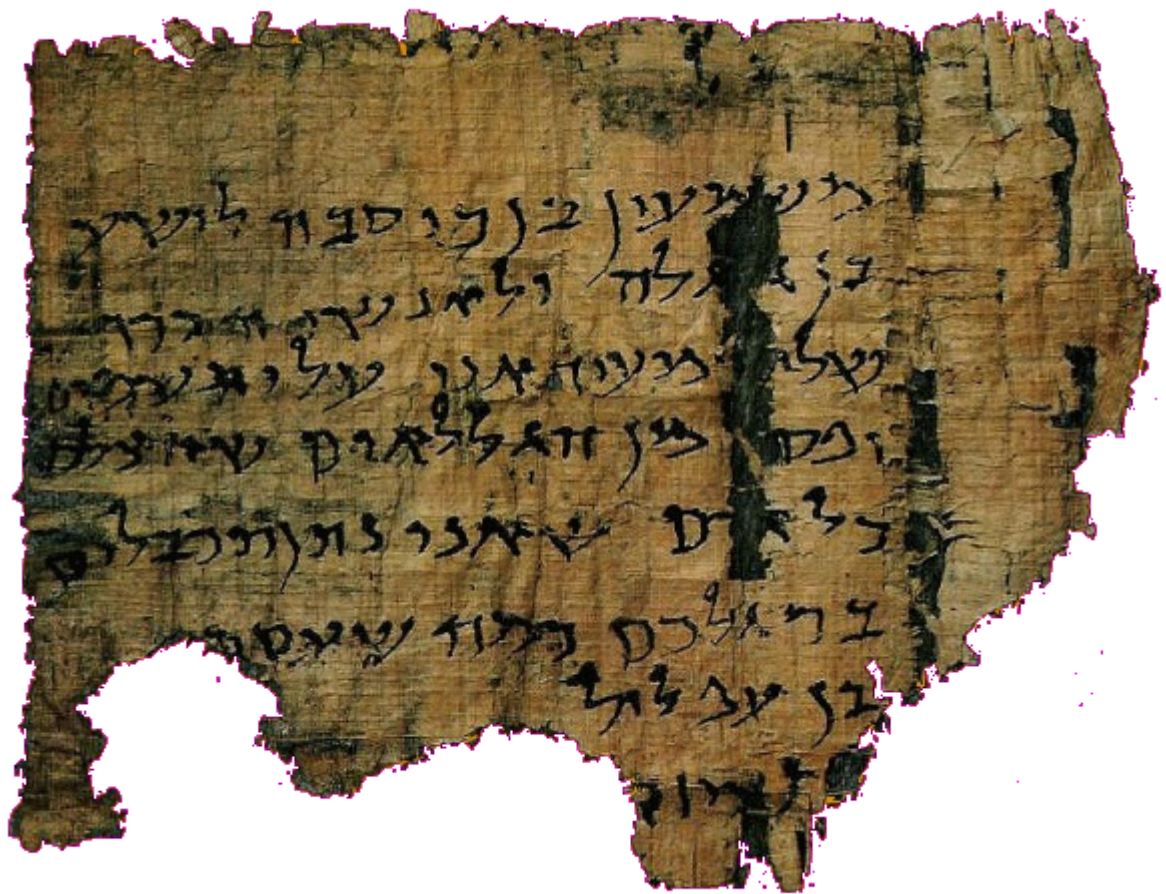 משמעון בן כוסבה לישע
בן גלגלה ולאנשי הכרך
שלום מעיד אני עלי תשמים
יפס מן הגללאים שהצלכם
כל אדם שאני נתן תכבלים
ברגלכם כמה שעסתי
בן עפלול